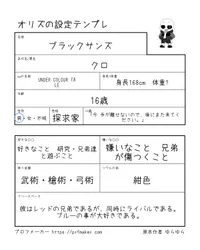 オリズの設定テンプレ
ブラックサンズ
クロ
UNDER COLOUR TA
LE
身長168cm 体重?
16歳
男・女・不明
探求家
今 手が離せないので、後にまた来てく
ださい。」
好きなこと 研究・兄弟達
と遊ぶこと
嫌いなこと 兄弟
が傷つくこと
武術・槍術・弓術
紺色
彼はレッドの兄弟であるが、同時にライバルである。
ブルーの事が大好きである。
プロフメーカー https://prfmaker.com/
原本作者 ゆらゆら